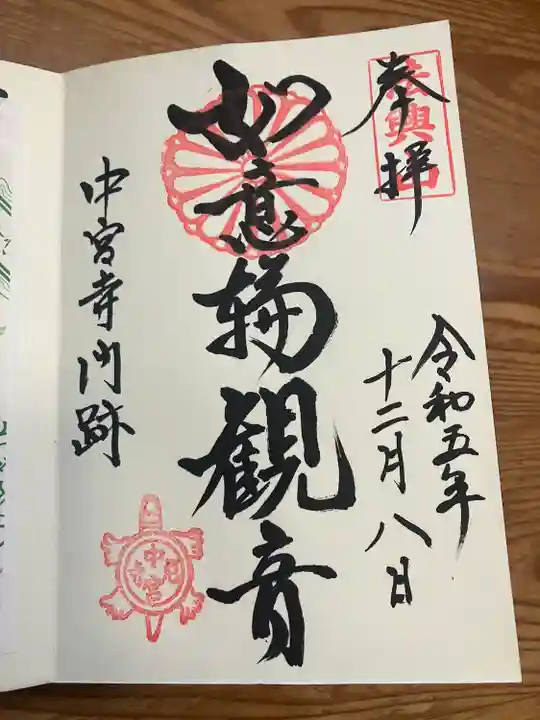 奉拝
法興山
令和五年
十二月八日
如意輪観音
中宮寺門跡
中宮尼寺